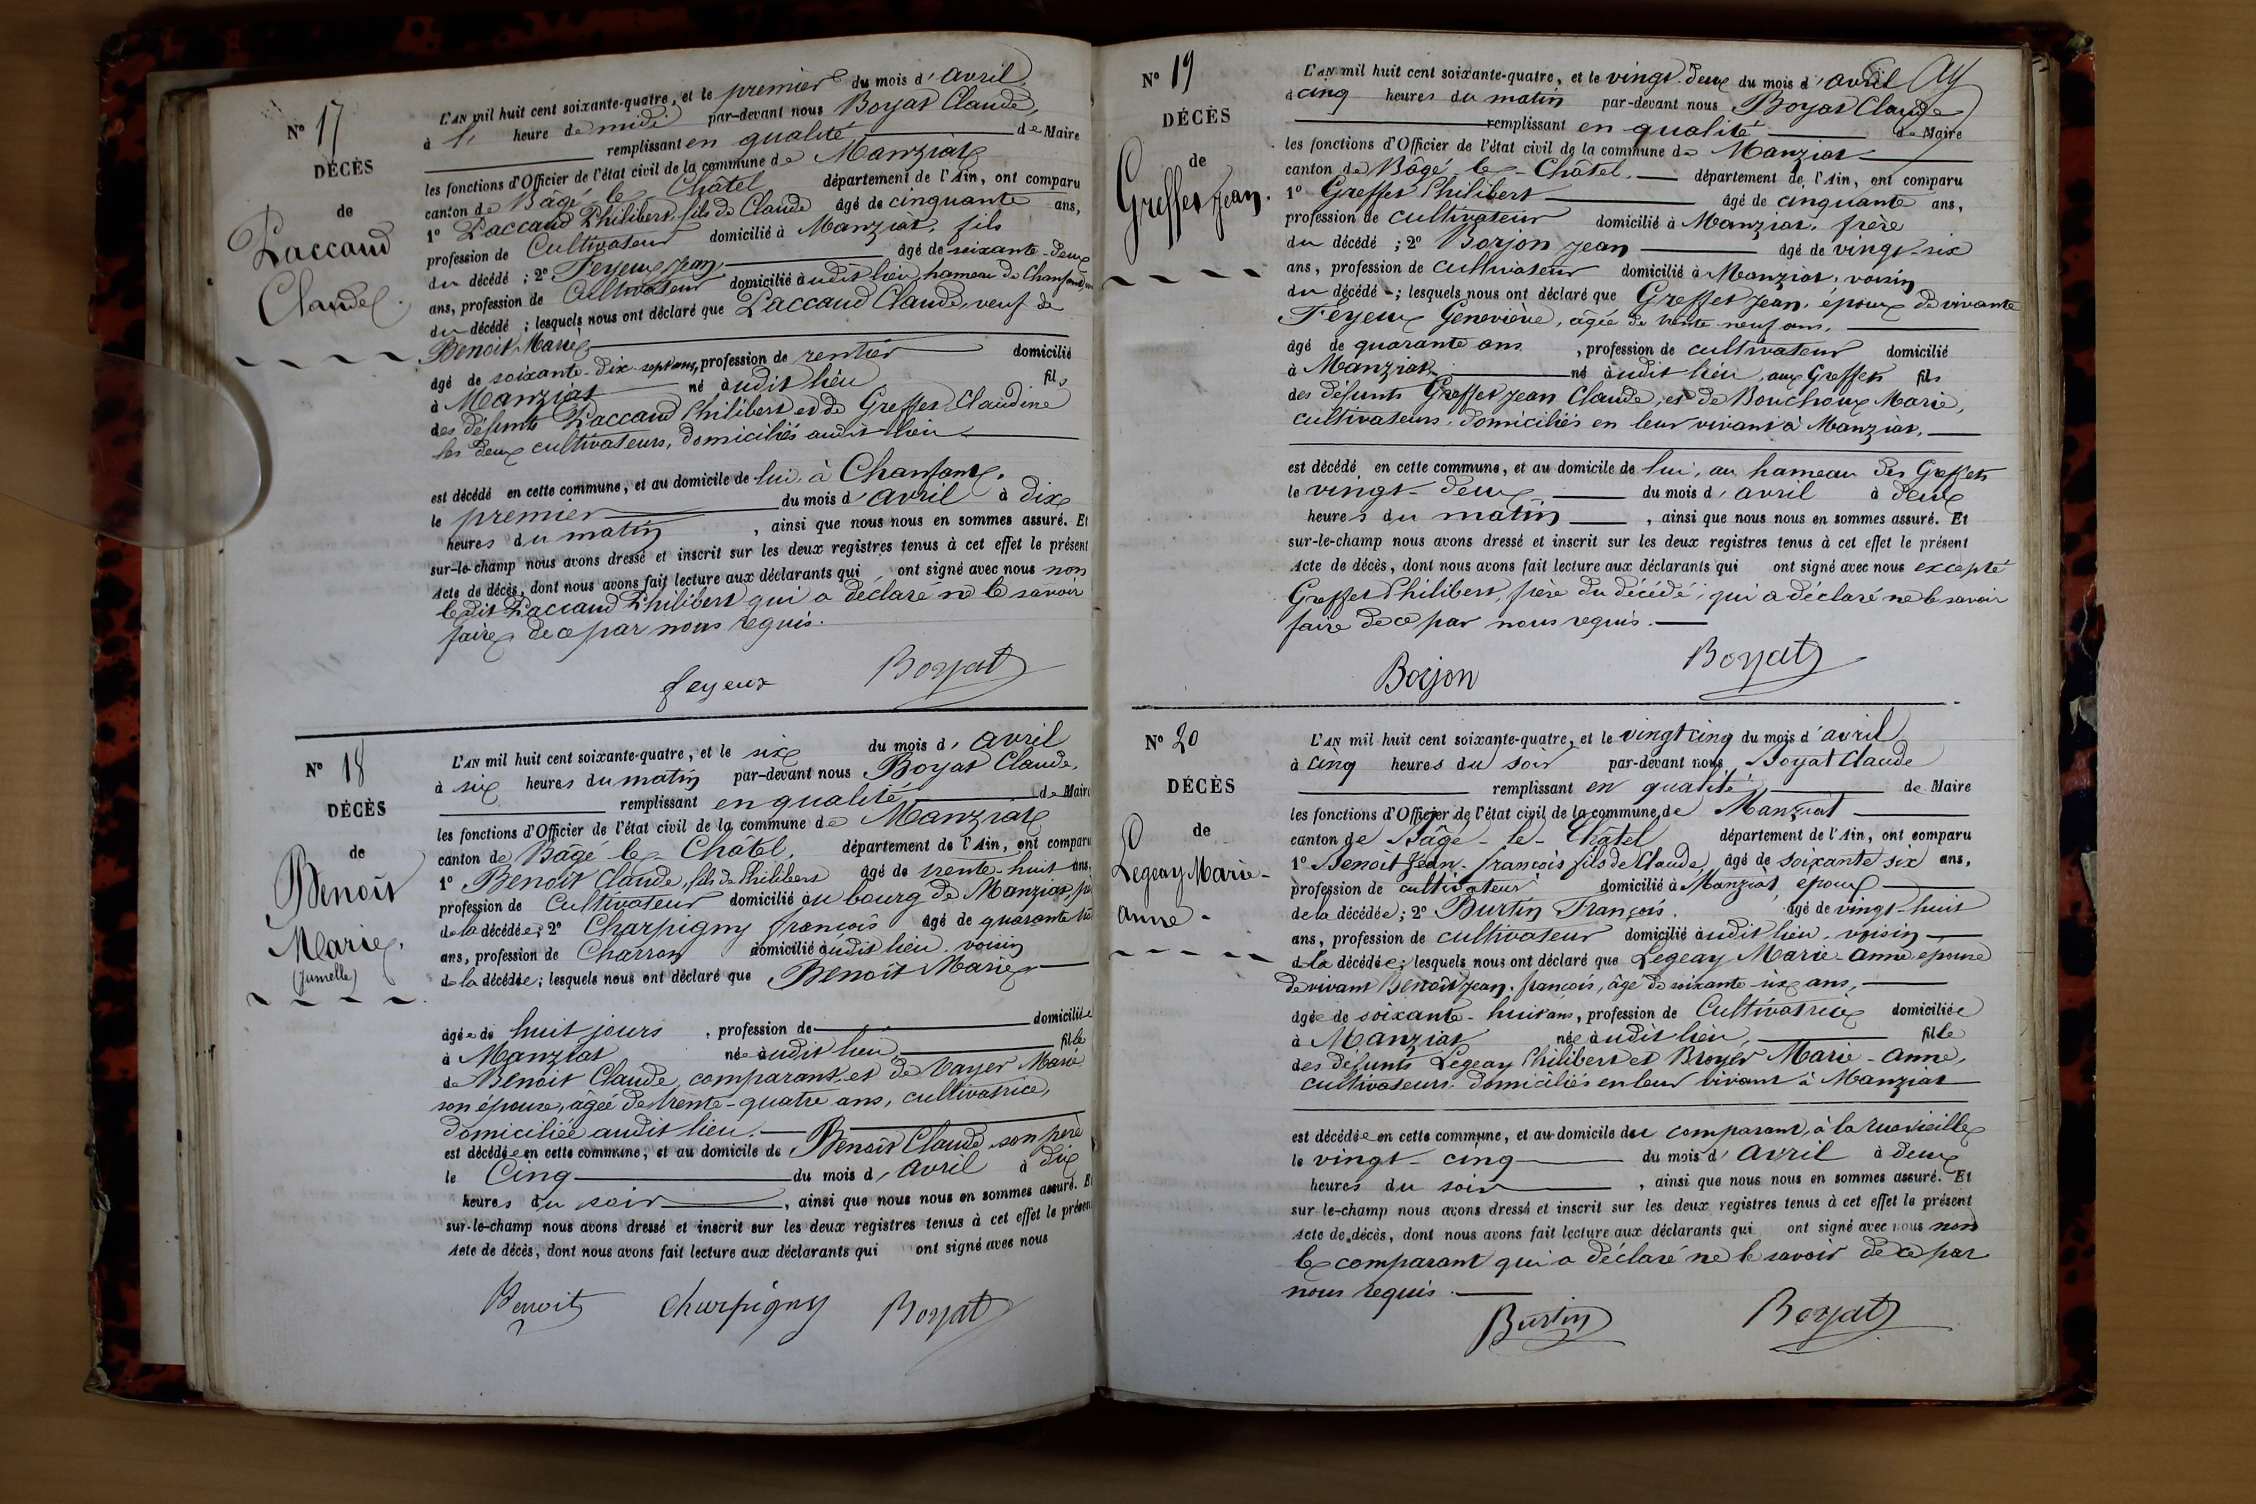 N° 17
DÉCÈS
de
Paccaud
Claude.
L'AN mil huit cent soixante-quatre, et le premier du mois d'avril
à 1 heure de midi par-devant nous Boyat Claude,
remplissant en qualité de Maire
les fonctions d'Officier de l'état civil de la commune de Manziat
canton de Bâgé-le-Châtel département de l'Ain, ont comparu
1° Paccaud Philibert, fils de Claude âgé de cinquante ans,
profession de Cultivateur domicilié à Manziat, fils
du décédé ; 2° Feyeux Jean âgé de soixante-deux
ans, profession de Cultivateur domicilié audit lieu, hameau de Chanfant,
du décédé ; lesquels nous ont déclaré que Paccaud Claude, veuf de
Benoît Marie
âgé de soixante-dix-sept ans, profession de rentier domicilié
à Manziat né audit lieu fils
des défunts Paccaud Philibert et de Greffet Claudine
les deux cultivateurs, domiciliés audit lieu
est décédé en cette commune, et au domicile de lui, à Chanfant,
le premier du mois d'avril à dix
heures du matin, ainsi que nous nous en sommes assuré. Et
sur-le-champ nous avons dressé et inscrit sur les deux registres tenus à cet effet le présent
Acte de décès, dont nous avons fait lecture aux déclarants qui ont signé avec nous non
ledit Paccaud Philibert qui a déclaré ne le savoir
faire de ce par nous requis.
feyeux Boyat
N° 18
DÉCÈS
de
Benoît
Marie,
(Jumelle)
L'AN mil huit cent soixante-quatre, et le six du mois d'avril
à six heures du matin par-devant nous Boyat Claude,
remplissant en qualité de Maire
les fonctions d'Officier de l'état civil de la commune de Manziat
canton de Bâgé-le-Châtel, département de l'Ain, ont comparu
1° Benoît Claude, fils de Philibert âgé de trente-huit ans,
profession de Cultivateur domicilié au bourg de Manziat,
de la décédée ; 2° Charpigny françois âgé de quarante
ans, profession de Charron domicilié audit lieu, voisin
de la décédée ; lesquels nous ont déclaré que Benoît Marie
âgée de huit jours, profession de domiciliée
à Manziat née audit lieu, fille
de Benoît Claude, comparant, et de Bayer Marie
son épouse, âgée de trente-quatre ans, cultivatrice,
domiciliée audit lieu.
est décédée en cette commune, et au domicile de Benoît Claude son père
le Cinq du mois d'avril à dix
heures du soir, ainsi que nous nous en sommes assuré. Et
sur-le-champ nous avons dressé et inscrit sur les deux registres tenus à cet effet le présent
Acte de décès, dont nous avons fait lecture aux déclarants qui ont signé avec nous
Benoit Charpigny Boyat
N° 19
DÉCÈS
de
Greffet Jean.
L'AN mil huit cent soixante-quatre, et le vingt-deux du mois d'avril
à cinq heures du matin par-devant nous Boyat Claude
remplissant en qualité de Maire
les fonctions d'Officier de l'état civil de la commune de Manziat
canton de Bâgé-le-Châtel, département de l'Ain, ont comparu
1° Greffet Philibert âgé de cinquante ans,
profession de cultivateur domicilié à Manziat, frère
du décédé ; 2° Borjon Jean âgé de vingt-six
ans, profession de cultivateur domicilié à Manziat, voisin
du décédé ; lesquels nous ont déclaré que Greffet Jean, époux de vivante
Feyeux Geneviève, âgée de trente neuf ans,
âgé de quarante ans, profession de cultivateur domicilié
à Manziat né audit lieu, aux Greffets fils
des défunts Greffet Jean Claude, et de Bouchoux Marie,
cultivateurs, domiciliés en leur vivant à Manziat,
est décédé en cette commune, et au domicile de lui, au hameau des Greffets
le vingt-deux du mois d'avril à deux
heures du matin, ainsi que nous nous en sommes assuré. Et
sur-le-champ nous avons dressé et inscrit sur les deux registres tenus à cet effet le présent
Acte de décès, dont nous avons fait lecture aux déclarants qui ont signé avec nous excepté
Greffet Philibert, frère du décédé, qui a déclaré ne le savoir
faire de ce par nous requis.
Borjon Boyat
N° 20
DÉCÈS
de
Legeay Marie-
anne-
L'AN mil huit cent soixante-quatre, et le vingt cinq du mois d'avril
à cinq heures du soir par-devant nous Boyat Claude
remplissant en qualité de Maire
les fonctions d'Officier de l'état civil de la commune de Manziat
canton de Bâgé-le-Châtel département de l'Ain, ont comparu
1° Benoit Jean-françois fils de Claude, âgé de soixante six ans,
profession de cultivateur domicilié à Manziat, époux
de la décédée ; 2° Burtin François, âgé de vingt-huit
ans, profession de cultivateur domicilié audit lieu, voisin
de la décédée ; lesquels nous ont déclaré que Legeay Marie-anne épouse
de vivant Benoit Jean-françois, âgé de soixante-six ans,
âgée de soixante-huit ans, profession de Cultivatrice domiciliée
à Manziat née audit lieu, fille
des défunts Legeay Philibert et Broyer Marie-Anne,
cultivateurs, domiciliés en leur vivant à Manziat
est décédée en cette commune, et au domicile du comparant, à la rue vieille
le vingt-cinq du mois d'avril à deux
heures du soir, ainsi que nous nous en sommes assuré. Et
sur-le-champ nous avons dressé et inscrit sur les deux registres tenus à cet effet le présent
Acte de décès, dont nous avons fait lecture aux déclarants qui ont signé avec nous non
le comparant qui a déclaré ne le savoir de ce par
nous requis.
Burtin Boyat